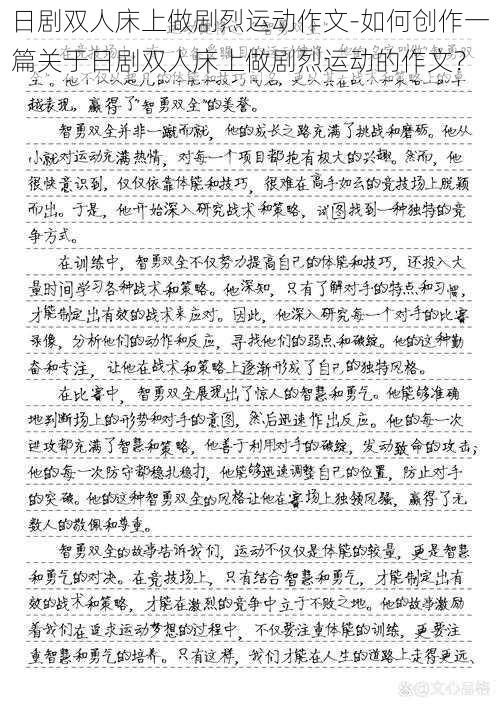 日剧双人床上做剧烈运动作文-如何创作一
篇关于日剧双人床上做剧烈运动的作文？
全"。他不仅以超凡的体能和技巧闻名，更以其在战术和策略上的卓
越表现，赢得了"智勇双全"的美誉。
智勇双全并非一蹴而就，他的成长之路充满了挑战和磨砺。他从
小就对运动充满热情，对每一个项目都抱有极大的兴趣。然而，他
很快意识到，仅仅依靠体能和技巧，很难在高手如云的竞技场上脱颖
而出。于是，他开始深入研究战术和策略，试图找到一种独特的竞
争方式。
在训练中，智勇双全不仅努力提高自己的体能和技巧，还投入大
量时间学习各种战术和策略。他深知，只有了解对手的特点和习惯，
才能制定出有效的战术来应对。因此，他深入研究每一个对手的比赛
录像，分析他们的动作和反应，寻找他们的弱点和破绽。他的这种勤
奋和专注，让他在战术和策略上逐渐形成了自己的独特风格。
在比赛中，智勇双全展现出了惊人的智慧和勇气。他能够准确
地判断场上的形势和对手的意图，然后迅速作出反应。他的每一次
进攻都充满了智慧和策略，他善于利用对手的破绽，发动致命的攻击；
他的每一次防守都稳扎稳打，他能够迅速调整自己的位置，防止对手
的突破。他的这种智勇双全的风格让他在赛场上独领风骚，赢得了无
数人的敬佩和尊重。
智勇双全的故事告诉我们，运动不仅仅是体能的较量，更是智慧
和勇气的对决。在竞技场上，只有结合智慧和勇气，才能制定出有
效的战术和策略，才能在激烈的竞争中立于不败之地。他的故事激励
着我们在追求运动梦想的过程中，不仅要注重体能的训练，更要注
重智慧和勇气的培养。只有这样，我们才能在人生的道路上走得更远、
文心品格